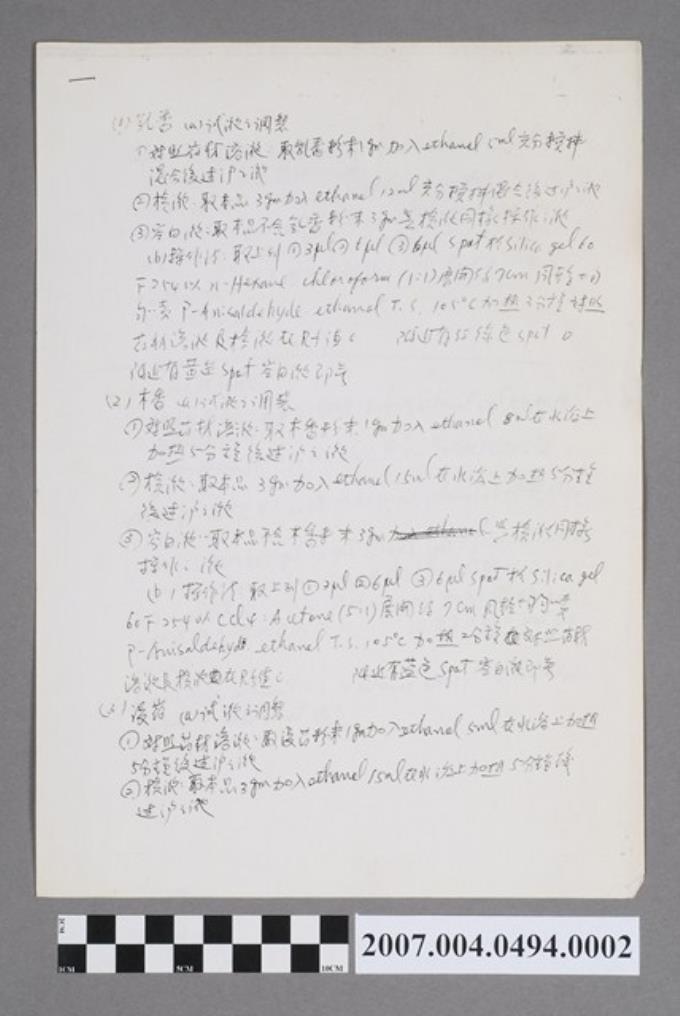 (1)乳香 (a)試液之調製
①對照药材溶液:取乳香粉末1gm加入ethanel 5ml充分攪拌
混合後过沪之液
②檢液:取本品3gm加入ethanel 12ml充分攪拌混合後过沪之液
③空白液:取本品不含乳香粉末3gm與檢液同樣操作之液
(b)操作法:取上列①3μl②6μl③6μl spot於silica gel 60
F254以n-Hexane chloroform (1:1)展開約7cm風乾
P-Anisaldehyde ethanel T.S. 105°C加热2分鐘對照
药材溶液及檢液在Rf值 附近有 綠色spot
附近有藍色spot空白液即無
(2)木香 (a)試液之調製
①對照药材溶液:取木香粉末1gm加入ethanel 8ml在水浴上
加热5分鐘後过沪之液
②檢液:取本品3gm加入ethanel 15ml在水浴上加热5分鐘
後过沪之液
③空白液:取本品不含木香粉末3gm與檢液同樣
操作之液
(b)操作法:取上列①2μl②6μl③6μl spot於silica gel
60F254以CCl4:Acetone(5:1)展開約7cm風乾
P-Anisaldehyde ethanel T.S. 105°C加热2分鐘 對照药材
溶液及檢液在Rf值 附近有藍色spot空白液即無
(3)没药 (a)試液之調製
①對照药材溶液:取没药粉末1gm加入ethanel 5ml在水浴上加热
5分鐘後过沪之液
②檢液:取本品3gm加入ethanel 15ml在水浴上加热5分鐘後
过沪之液
1CM 5CM 10CM
2007.004.0494.0002